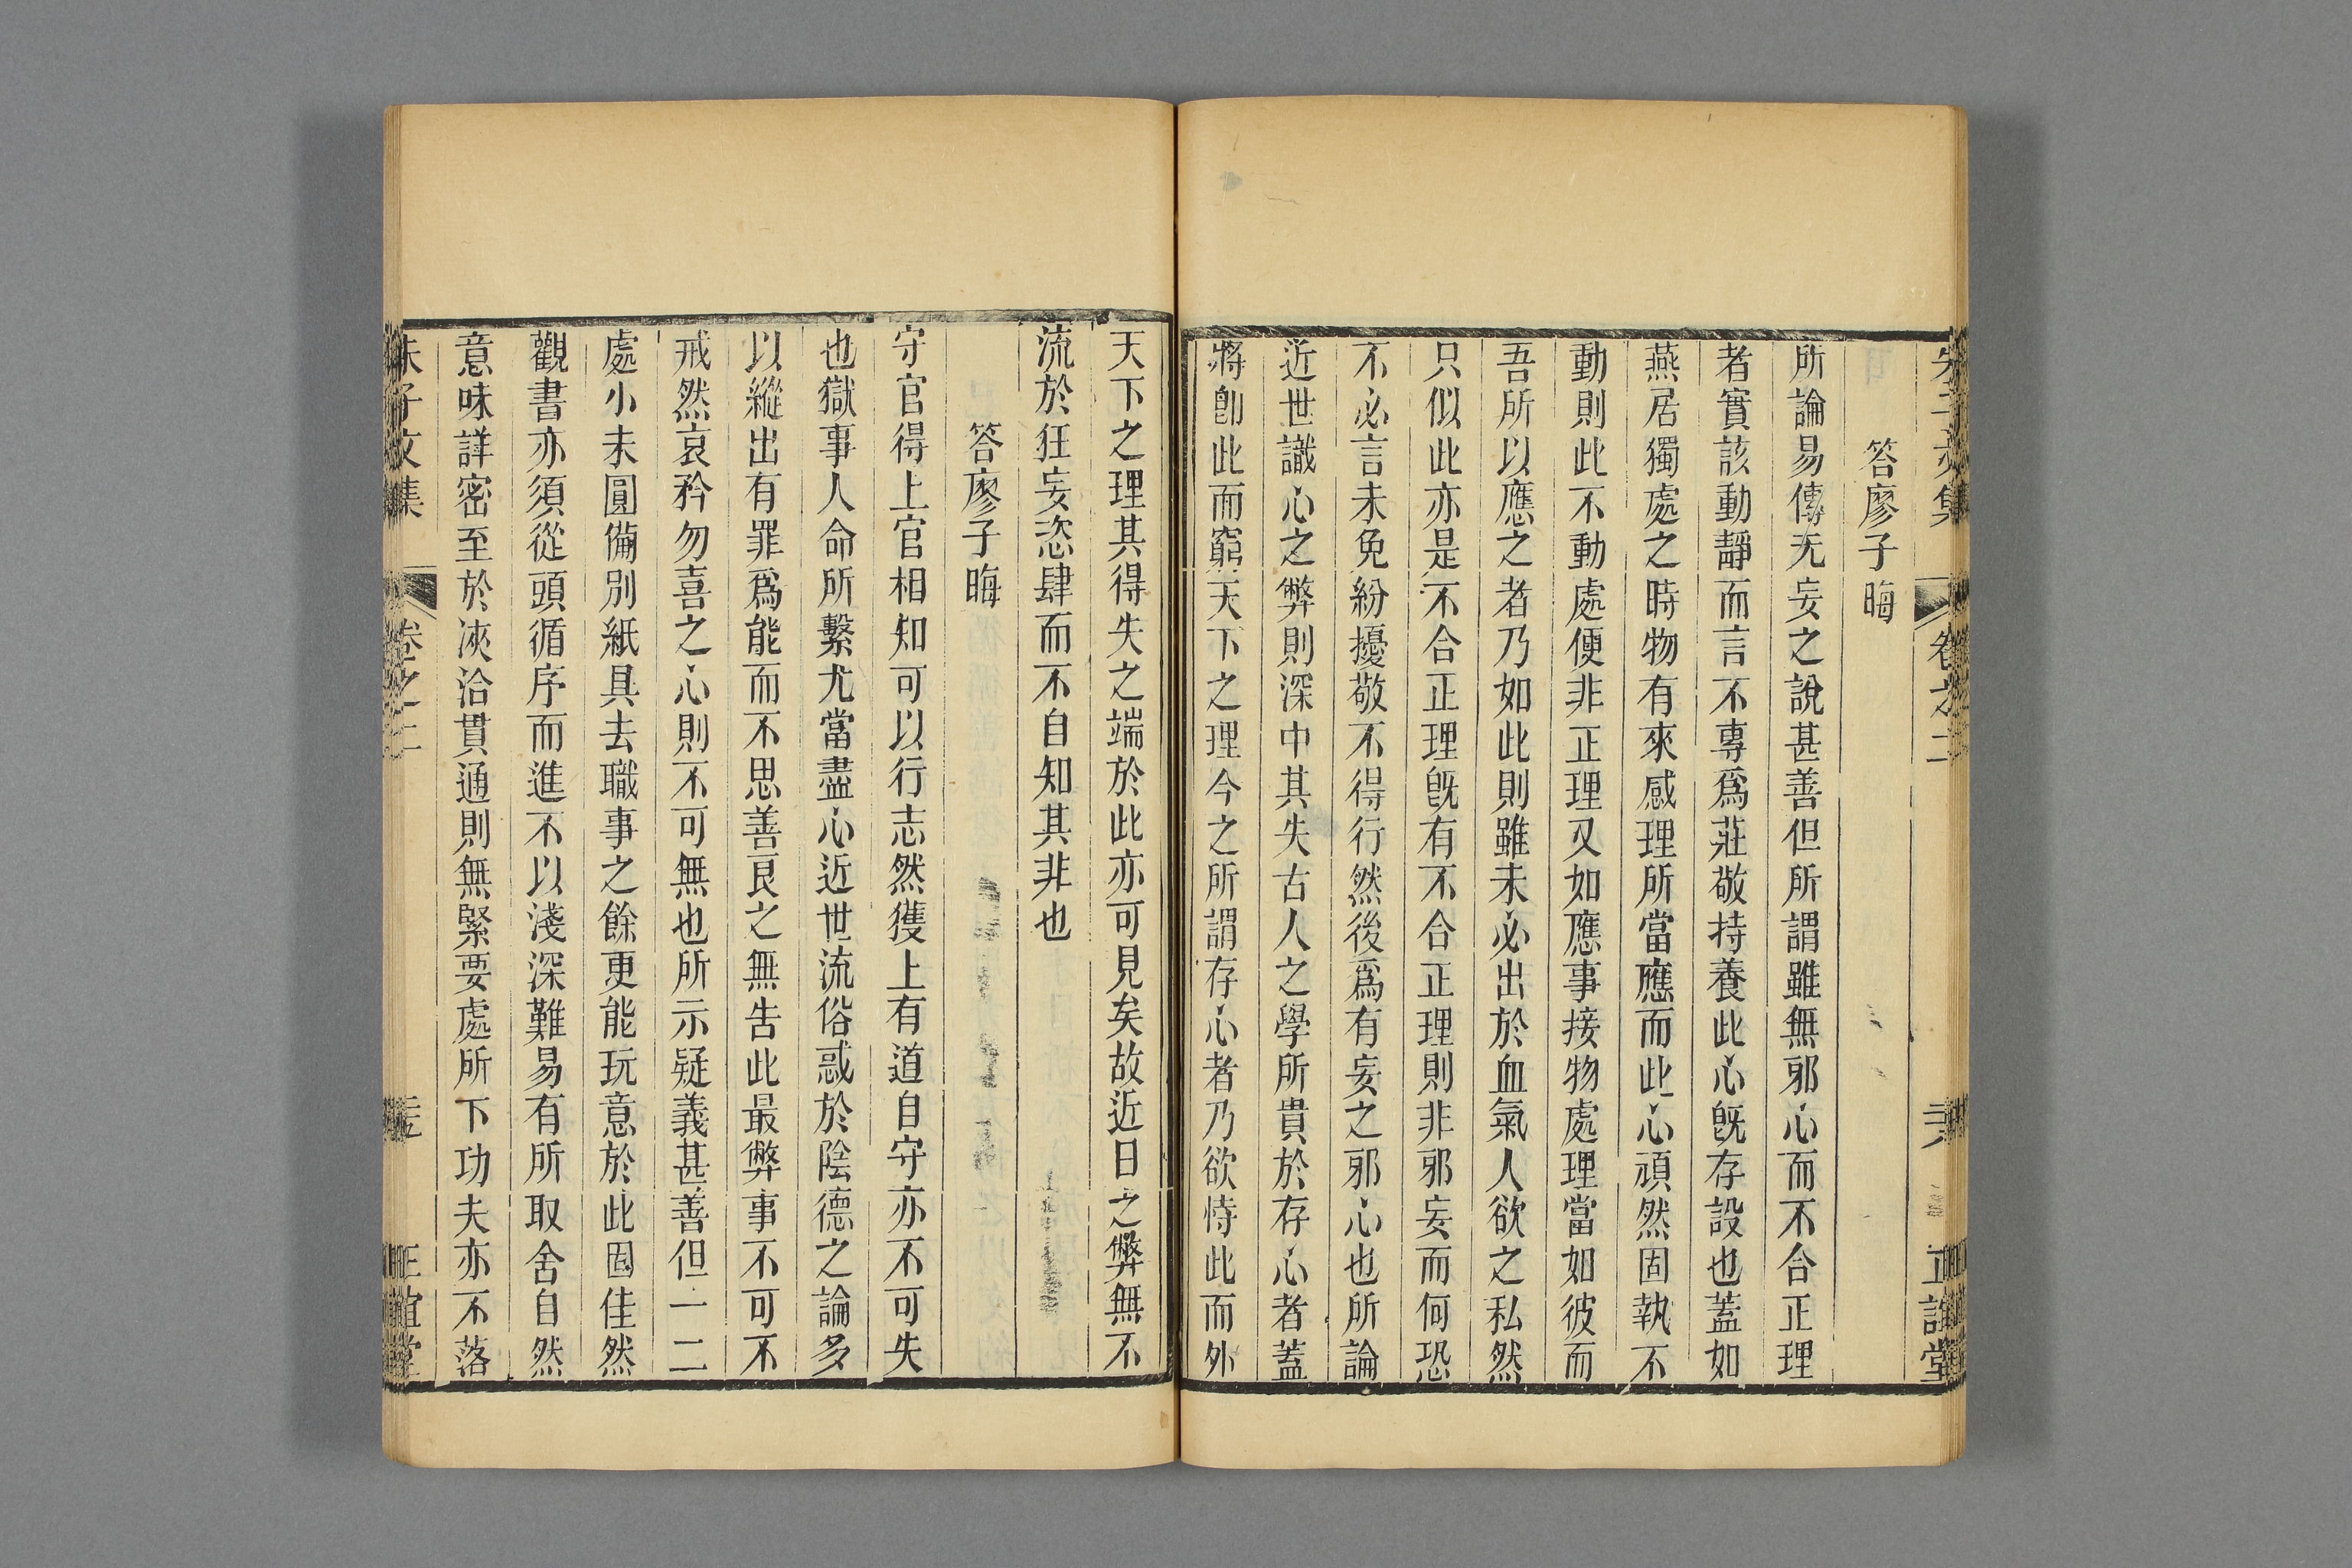 答廖子晦
所論易傳无妄之說甚善但所謂雖無邪心而不合正理
者實該動靜而言不專爲莊敬持養此心旣存設也蓋如
燕居獨處之時物有來感理所當應而此心頑然固執不
動則此不動處便非正理又如應事接物處理當如彼而
吾所以應之者乃如此則雖未必出於血氣人欲之私然
只似此亦是不合正理旣有不合正理則非邪妄而何恐
不必言未免紛擾敬不得行然後爲有妄之邪心也所論
近世識心之弊則深中其失古人之學所貴於存心者蓋
將卽此而窮天下之理今之所謂存心者乃欲恃此而外
天下之理其得失之端於此亦可見矣故近日之弊無不
流於狂妄恣肆而不自知其非也
答廖子晦
守官得上官相知可以行志然獲上有道自守亦不可失
也獄事人命所繫尤當盡心近世流俗惑於陰德之論多
以縱出有罪爲能而不思善良之無告此最弊事不可不
戒然哀矜勿喜之心則不可無也所示疑義甚善但一二
處小未圓備別紙具去職事之餘更能玩意於此固佳然
觀書亦須從頭循序而進不以淺深難易有所取舍自然
意味詳密至於浹洽貫通則無緊要處所下功夫亦不落
朱子文集 卷之二